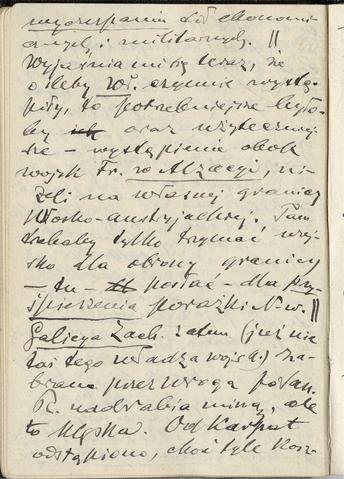 wyczerpaniu sił ekonomi-
cznych i militarnych. ||
Wyjaśnia mi się teraz, że
o ileby Wł. czynnie wystą-
piły, to potrzebniejsze było-
by oraz użyteczniej-
sze – wystąpienie obok
wojsk Fr. w Alzacyi, ni-
żeli na własnej granicy
Włosko-austryjackiej. Tam
trzebaby tylko trzymać woj-
sko dla obrony granicy
– tu – posłać – dla przy-
śpieszenia porażki N-w. ||
Galicya Zach. zatem (już nie
tai tego władza wojsk.) za-
brana przez wroga
R. nadrabia miną, ale
to klęska. Od Karpat
odstąpiono, choć tyle kosz-